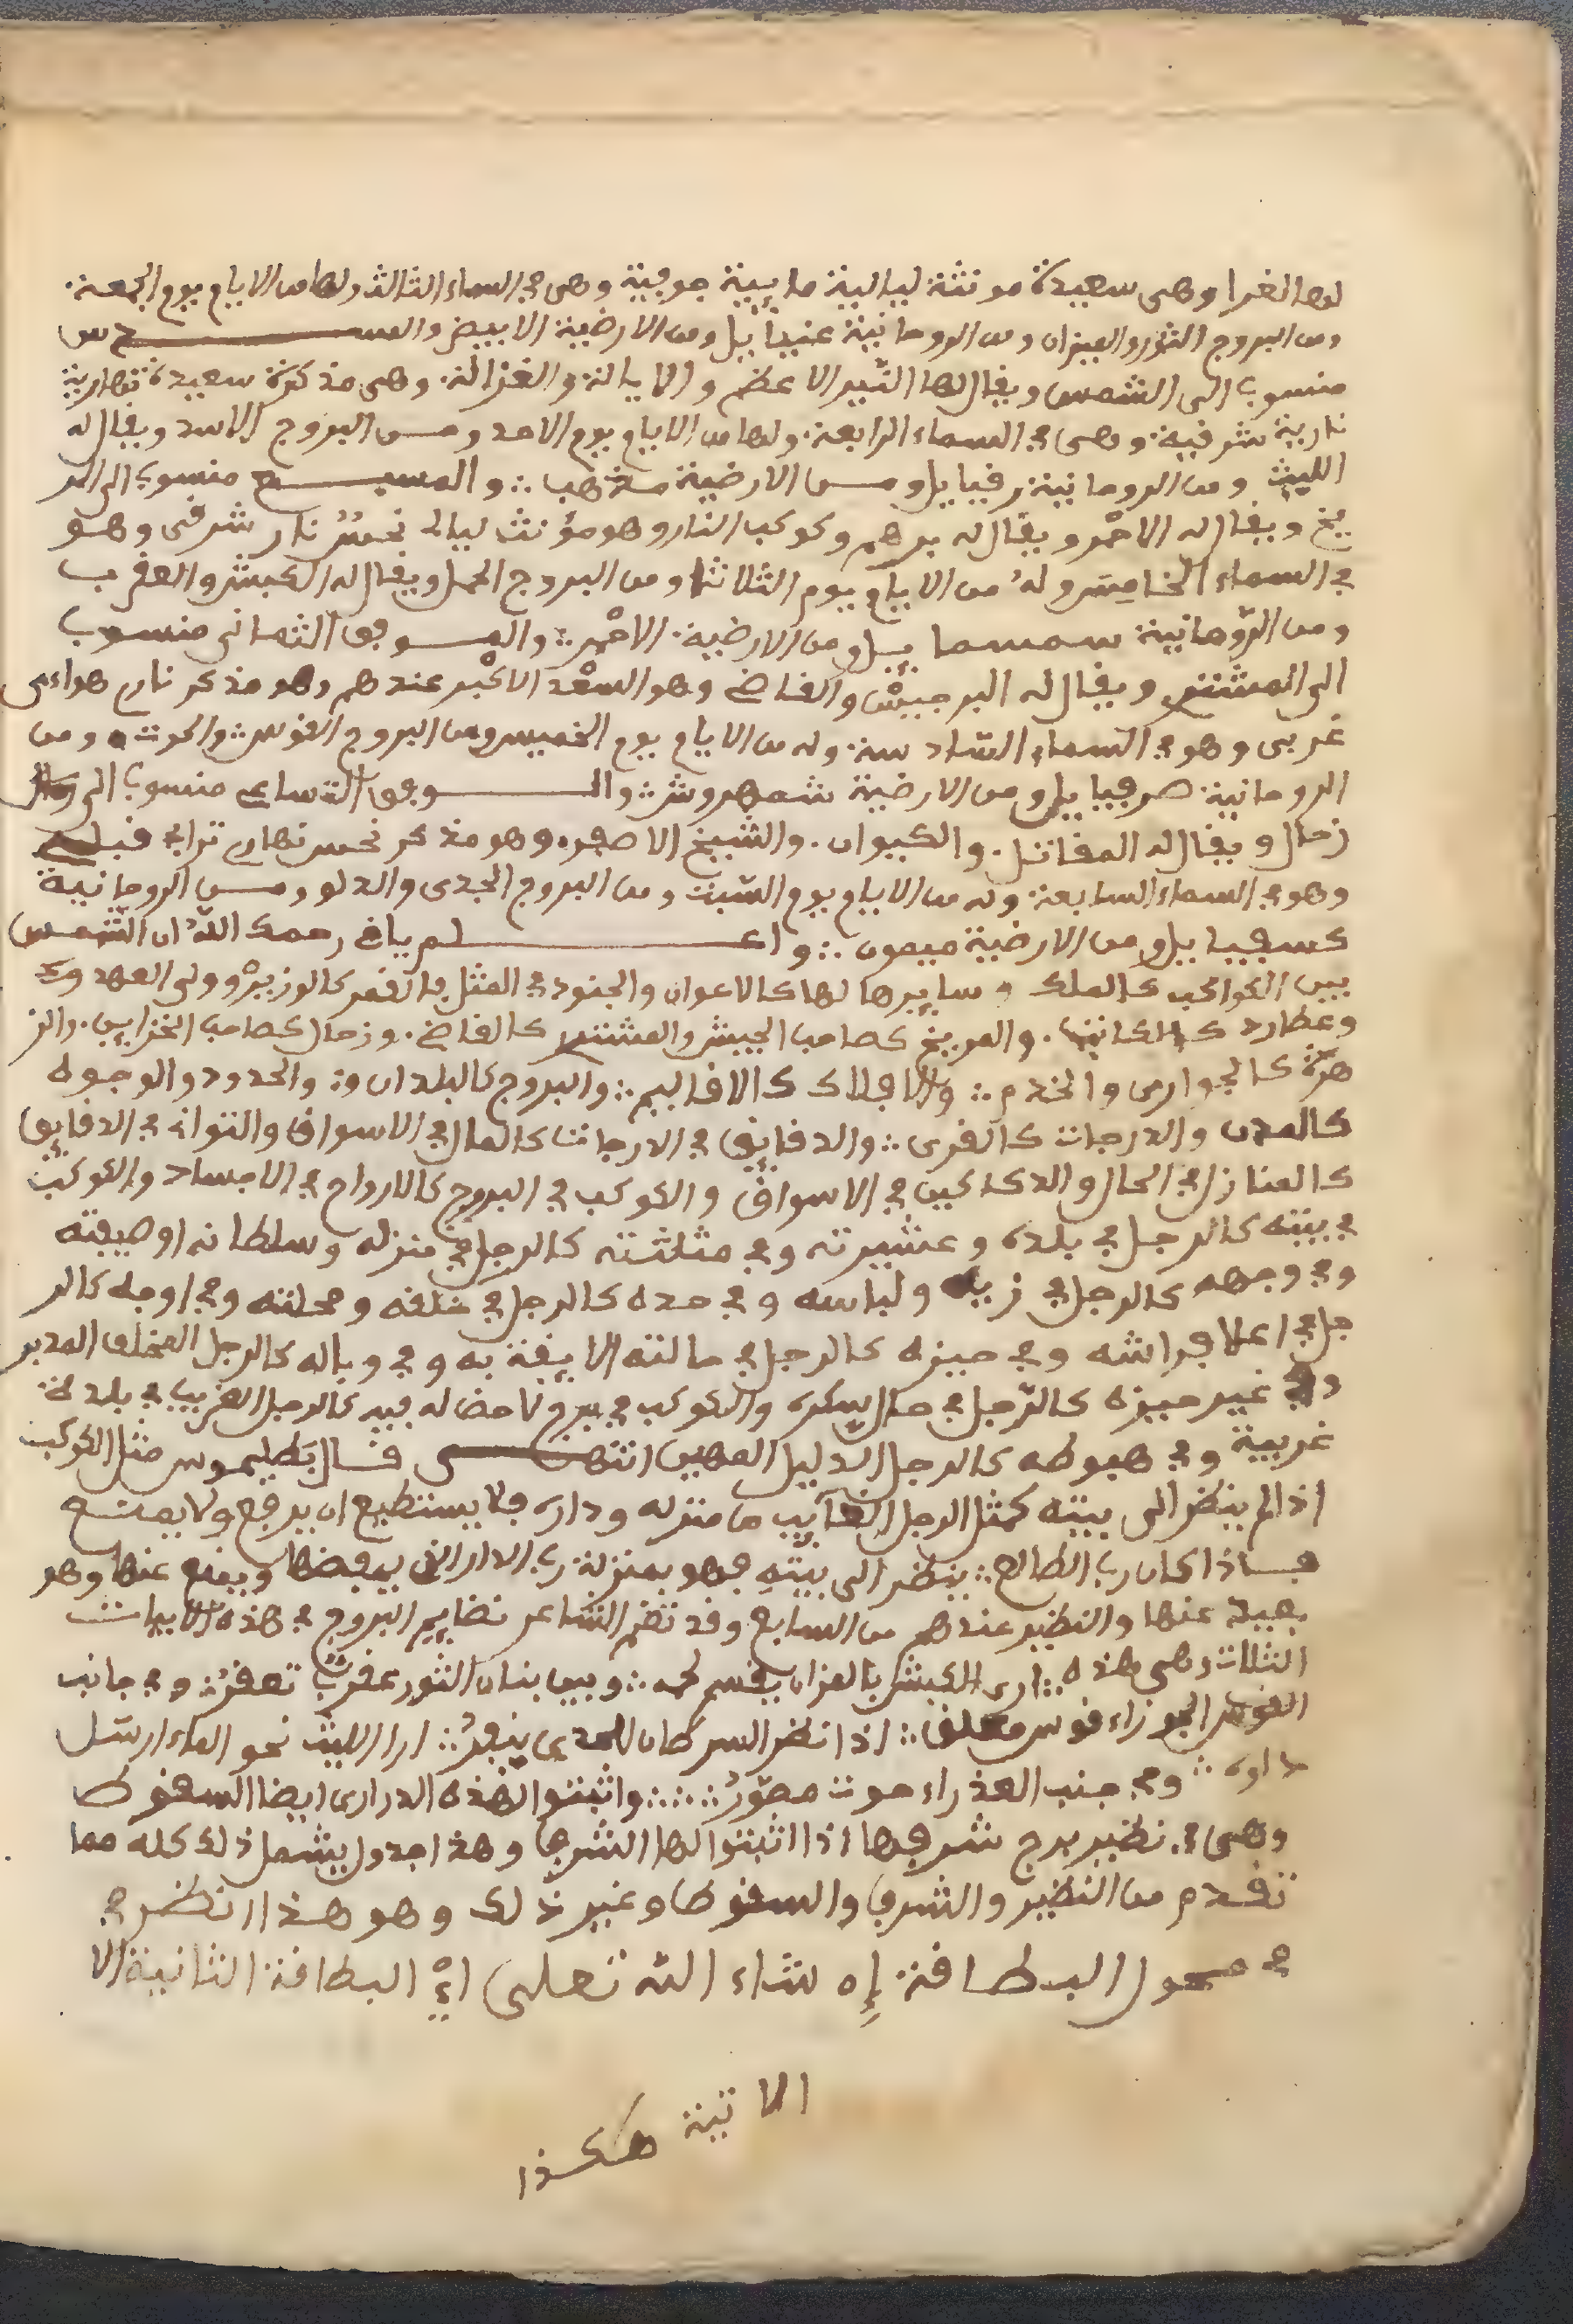 لها الغرا وهى سعيدة مونثة ليالية مايية جوفية وهى في السماء الثالث ولها من الايام يوم الجمعة.
ومن البروج الثور والميزان ومن الروحانية عنيائيل ومن الارضية الابيض والمسدس
منسوب الى الشمس ويقال لها النير الاعظم والايالة والغزالة. وهى مذكرة سعيدة نهارية
نارية شرقية. وهى في السماء الرابعة. ولها من الايام يوم الاحد ومن البروج الاسد ويقال له
الليث ومن الروحانية رقيايل ومن الارضية مذهب ∴ والمسبع منسوب الى المر
يخ ويقال له الاحمر ويقال له بهرهم وكوكب النار وهو مؤنث ليالى نحس نار شرقى وهو
في السماء الخامس وله من الايام يوم الثلاثا ومن البروج الحمل ويقال له الكبش والعقرب
ومن الروحانية سمسمايل ومن الارضية. الاحمر ∴ والموفق الثمانى منسوب
الى المشتر ويقال له البرجيس والقاض وهو السعد الاكبر عندهم وهو مذكر نارى هواءى
غربى وهو في السماء السادسة. وله من الايام يوم الخميس ومن البروج القوس والحوت ومن
الروحانية. صرفيايل ومن الارضية شمهروش ∴ والوفق التساعى منسوب الى
زحل ويقال له المقاتل. والكيوان. والشيخ الاصغر. وهو مذكر نحس نهارى ترابى قبلى
وهو في السماء السابعة وله من الايام يوم السبت ومن البروج الجدى والدلو ومن الروحانية
كسفيايل ومن الارضية ميمون ∴ واعلم ياخى رحمك الله ان الشمس
بين الكواكب كالملك وسايرها لها كالاعوان والجنود في المثل فالقمر كالوزير وولى العهد
وعطارد كالكاتب. والمريخ كصاحب الجيش والمشتر كالقاض. وزحل كصاحب الخزاين. والز
هرة كالجوارى والخدم ∴ والافلاك كالاقاليم ∴ والبروج كالبلدان ∴ والحدود والوجوه
كالمدن والدرجات كالقرى ∴ والدقايق في الدرجات كالمحال في الاسواق والثوانى في الدقايق
كالمنازل في المحال والدكاكين في الاسواق والكوكب في البروج كالارواح في الاجساد والكوكب
في بيته كالرجل في بلده وعشيرته وفي مثلثته كالرجل في منزله وسلطانه او ضيعته
وفي وجهه كالرجل في زيه ولباسه وفي حده كالرجل في خلقه ومحلته وفي اوجه كالر
جل في اعلا فراشه وفي حيزه كالرجل في حالته الايقة به وفي وباله كالرجل المخلف المدبر
وفي غير حيزه كالرجل في حال سكره والكوكب في برج لا حض له فيه كالرجل الغريب في بلدة
غريبة وفي هبوطه كالرجل الذليل المهين انتهى قال بطليموس مثل الكوكب
اذا لم ينظر الى بيته كمثل الرجل الغايب من منزله وداره فلا يستطيع ان يدفع ولا يمنع
فاذا كان رب الطالع ∴ ينظر الى بيته فهو بمنزلة رب الدار الذى يحفضها ويمنع عنها وهو
بعيد عنها والنظير عندهم من السابع وقد نظم الشاعر نظاير البروج في هذه الابيات
الثلاث وهى هذه ∴ ارى الكبش بالمزان يقسم لحمه ∴ وبين بنات الثور عقرب تعقر ∴ وفي جانب
القوس الجوزاء قوس معلق ∴ اذا نظر السرطان للجدى ينفر ∴ ارا الليث نحو الماء ارسل
دلوه ∴ وفي جنب العذراء حوت مصور ∴ ∴ واثبتوا لهذه الدرارى ايضا السقوط
وهى في نظير برج شرفها اذا اثبتوا لها الشرف وهذا جدول يشمل ذلك كله مما
تقدم من النظير والشرف والسقوط وغير ذلك وهو هذا انظر في
في محول البطاقة إن شاء الله تعلى اي البطاقة الثانية الا
الاتية هكذا